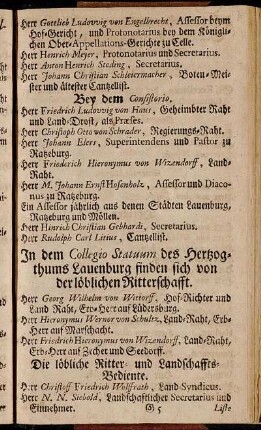 Herr Gottlieb Ludovvig von Engelbrecht, Assessor beym
Hof-Gericht, und Protonotarius bey dem Königli-
chen Ober-Appellations-Gerichte zu Celle.
Herr Henrich Meyer, Protonotarius und Secretarius.
Herr Anton Henrich Steding, Secretarius.
Herr Johann Christian Schleiermacher, Boten-Mei-
ster und ältester Cantzellist.
Bey dem Consistorio.
Herr Friedrich Ludovvig von Haus, Geheimbter Raht
und Land-Drost, als Præses.
Herr Christoph Otto von Schrader, Regierungs-Raht.
Herr Johann Elers, Superintendens und Pastor zu
Ratzeburg.
Herr Friederich Hieronymus von Witzendorff, Land-
Raht.
Herr M. Johann Ernst Hosenholz, Assessor und Diaco-
nus zu Ratzeburg.
Ein Assessor jährlich aus denen Städten Lauenburg,
Ratzeburg und Möllen.
Herr Hinrich Christian Gebhardt, Secretarius.
Herr Rudolph Carl Litius, Cantzellist.
In dem Collegio Statuum des Hertzog-
thums Lauenburg finden sich von
der löblichen Ritterschafft.
Herr Georg Wilhelm von Wittorff, Hof-Richter und
Land Raht, Erb-Herr auf Lüdersburg.
Herr Hieronymus Werner von Schultz, Land-Raht, Erb-
Herr auf Marschacht.
Herr Friedrich Hieronymus von Witzendorff, Land-Raht,
Erb-Herr auf Zecher und Seedorff.
Die löbliche Ritter- und Landschaffts-
Bediente.
Herr Christoff Friedrich Wolffrath, Land-Syndicus.
Herr N. N. Siebold, Landschafftlicher Secretarius und
Einnehmer. 5 Laste